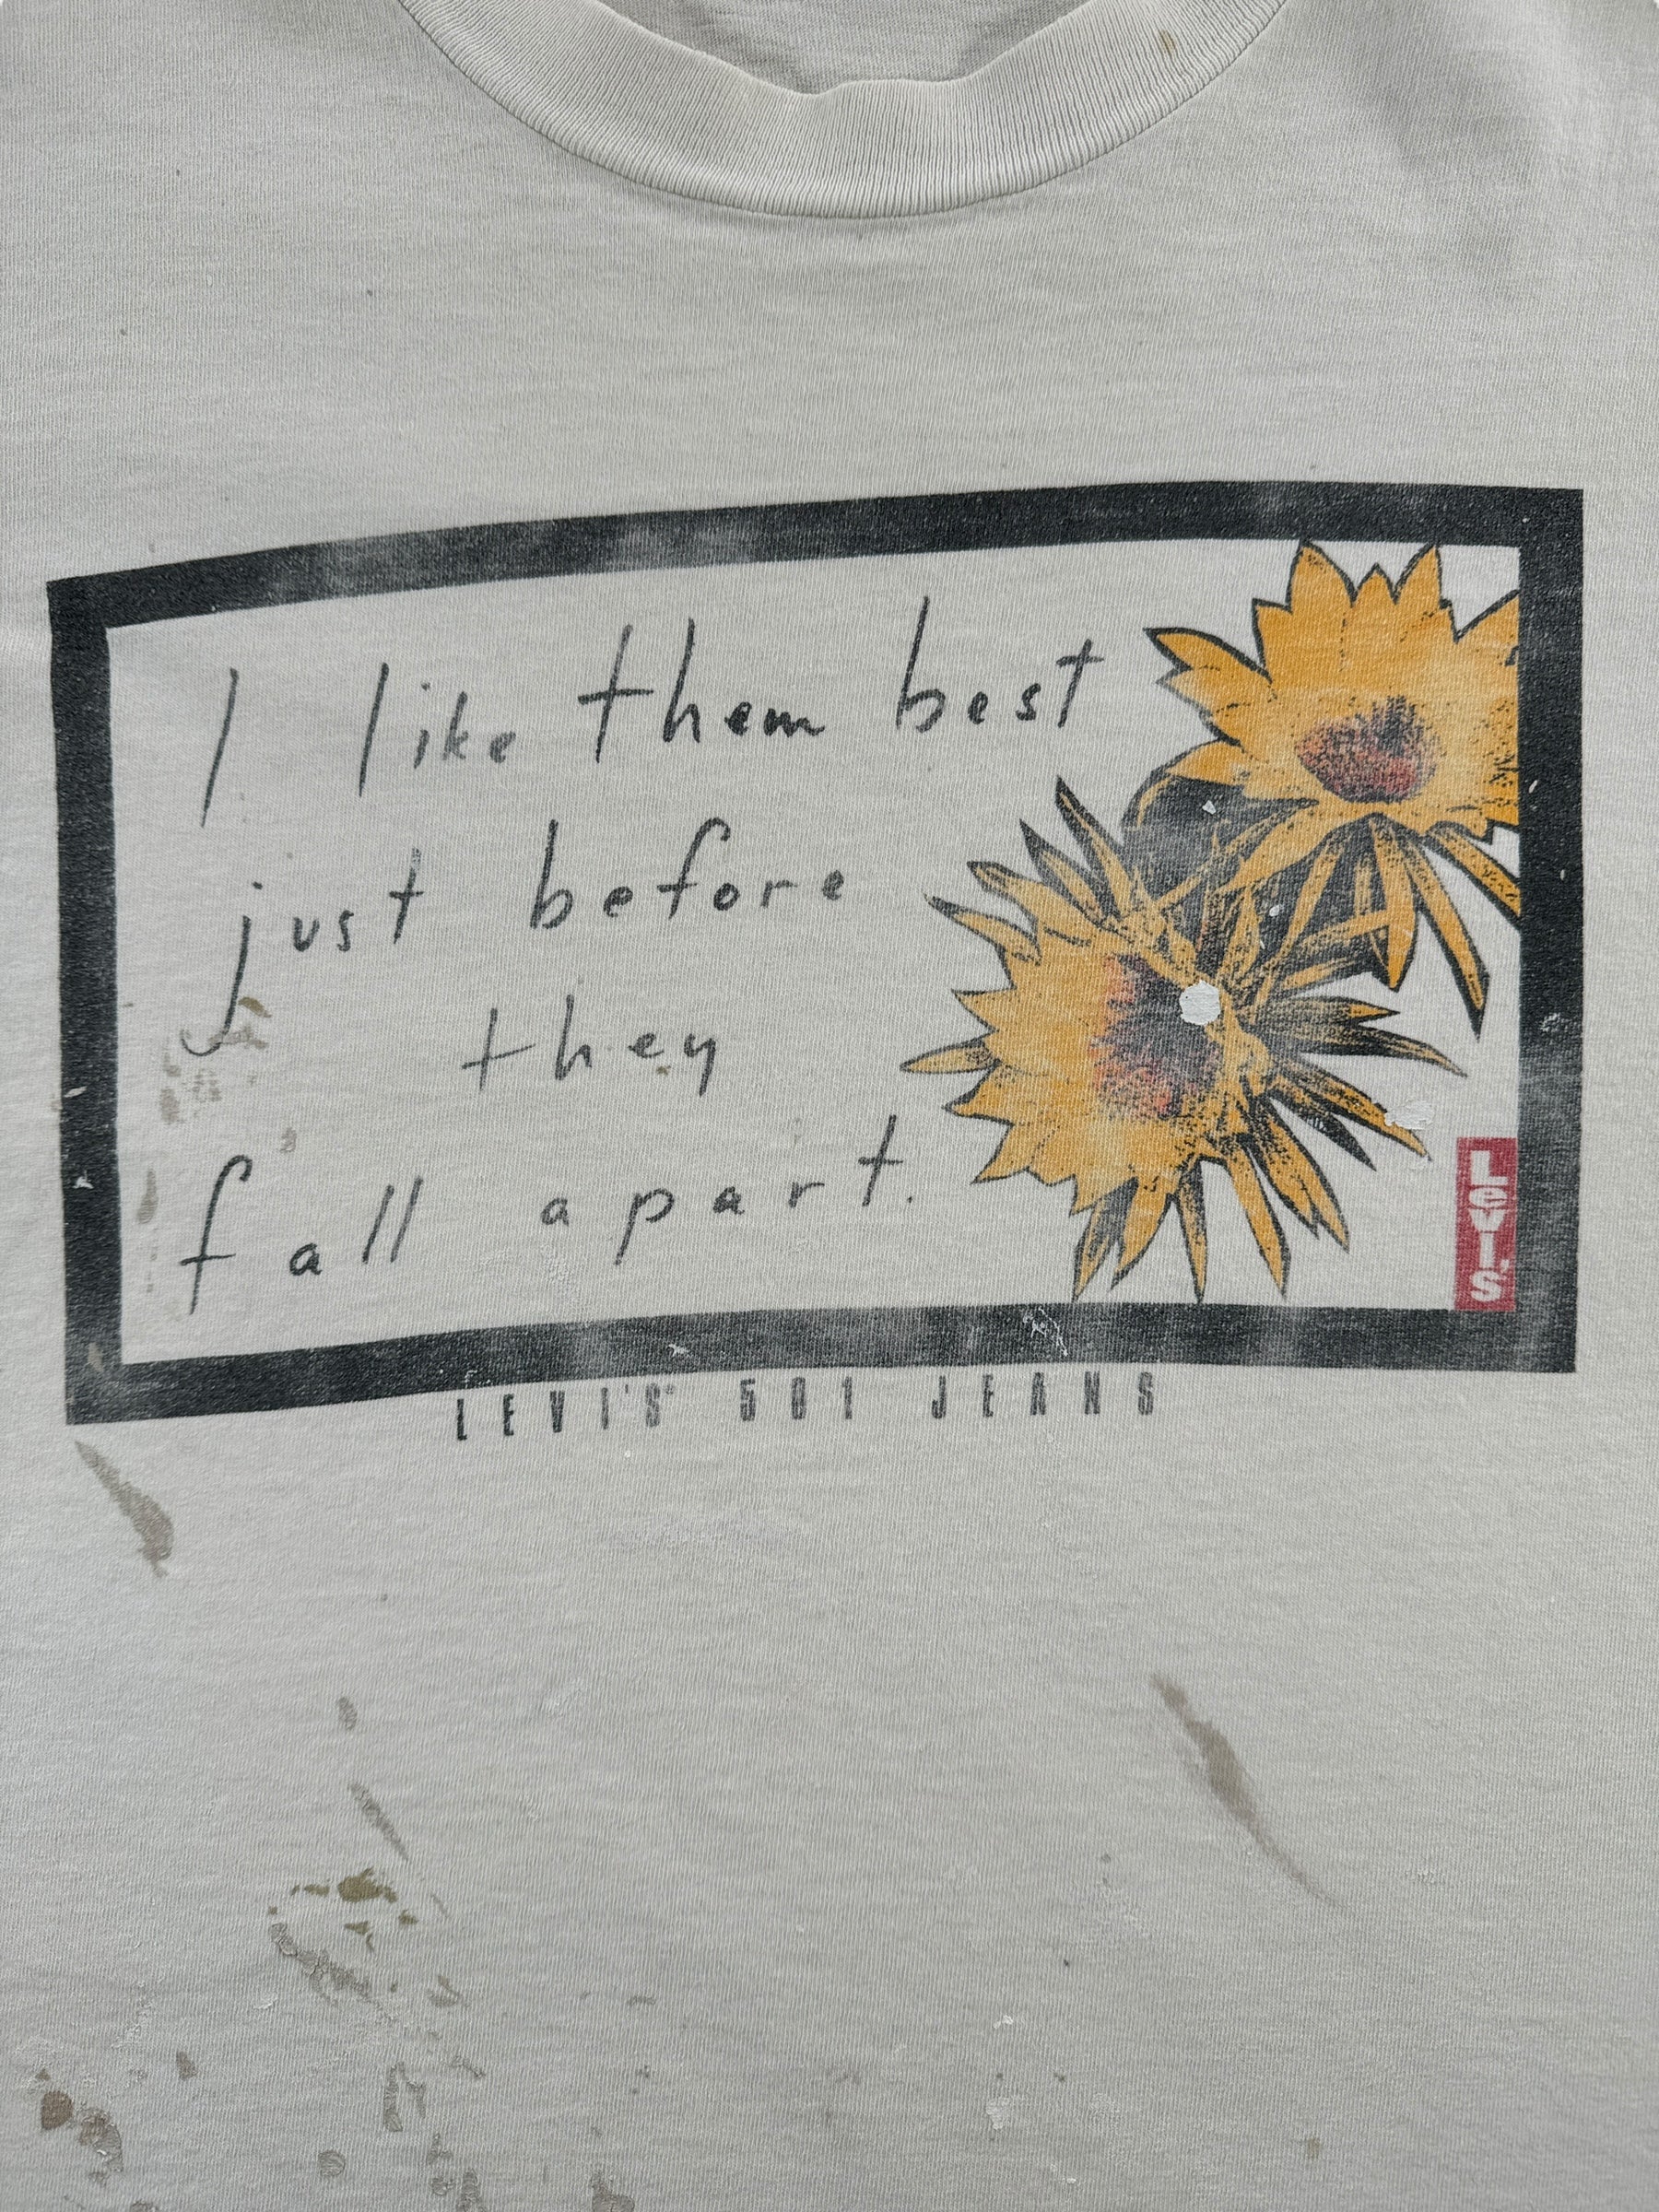 I like them best
just before
they
fall apart.
Levi's
LEVI'S® 501 JEANS